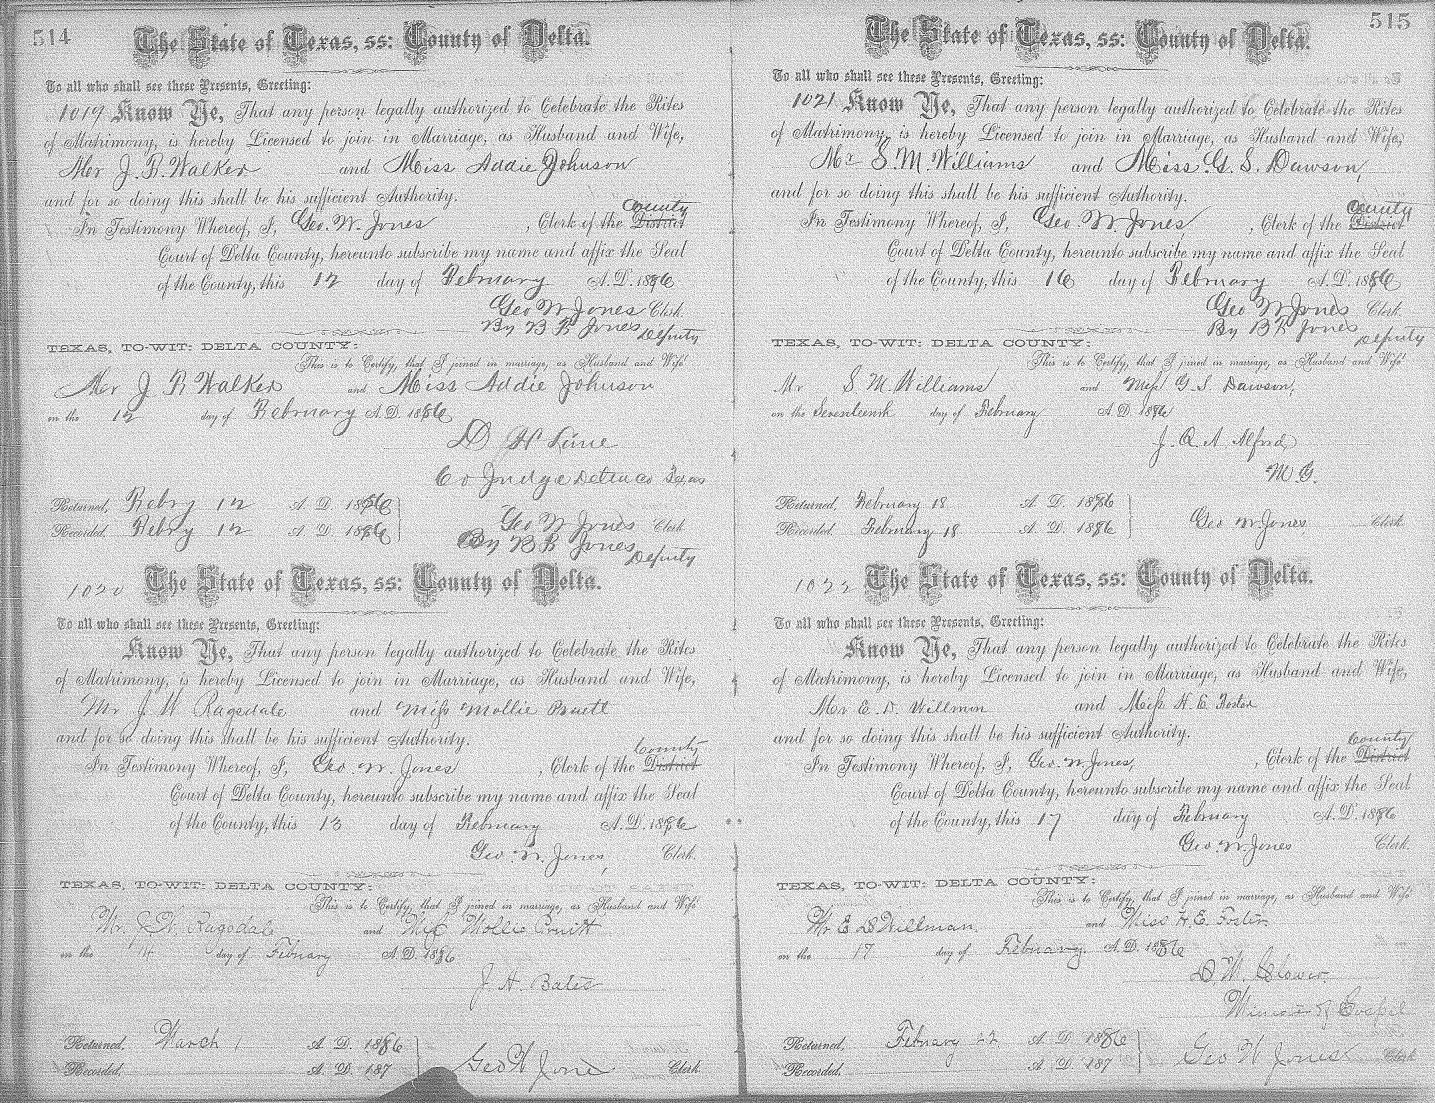 514
The State of Texas, ss: County of Delta.
To all who shall see these Presents, Greeting:
1019 Know Ye, That any person legally authorized to Celebrate the Rites
of Matrimony, is hereby Licensed to join in Marriage, as Husband and Wife,
Mr J. R. Walker and Miss Addie Johnson
and for so doing this shall be his sufficient Authority.
County
In Testimony Whereof, I, Geo. W. Jones, Clerk of the District
Court of Delta County, hereunto subscribe my name and affix the Seal
of the County, this 12 day of February A. D. 1886
Geo W Jones Clerk.
By B F Jones Deputy
TEXAS, TO-WIT: DELTA COUNTY:
This is to Certify, that I joined in marriage, as Husband and Wife
Mr J R Walker and Miss Addie Johnson
on the 12 day of February A. D. 1886
D H Lane
Co Judge Delta Co Texas
Returned, Febry 12 A. D. 1886
Recorded, Febry 12 A. D. 1886
Geo W Jones Clerk
By B F Jones Deputy
1020 The State of Texas, ss: County of Delta.
To all who shall see these Presents, Greeting:
Know Ye, That any person legally authorized to Celebrate the Rites
of Matrimony, is hereby Licensed to join in Marriage, as Husband and Wife,
Mr J W Ragsdale and Miss Mollie Pruett
and for so doing this shall be his sufficient Authority.
County
In Testimony Whereof, I, Geo. W. Jones, Clerk of the District
Court of Delta County, hereunto subscribe my name and affix the Seal
of the County, this 13 day of February A. D. 1886
Geo. W. Jones, Clerk.
TEXAS, TO-WIT: DELTA COUNTY:
This is to Certify, that I joined in marriage, as Husband and Wife
Mr. J W Ragsdale and Miss Mollie Pruitt
on the 14 day of Febuary A. D. 1886
J. H. Bates
Returned, March 1 A. D. 1886
Recorded, A. D. 187
Geo W Jones Clerk
515
The State of Texas, ss: County of Delta.
To all who shall see these Presents, Greeting:
1021 Know Ye, That any person legally authorized to Celebrate the Rites
of Matrimony, is hereby Licensed to join in Marriage, as Husband and Wife,
Mr S. M. Williams and Miss G. S. Dawson,
and for so doing this shall be his sufficient Authority.
County
In Testimony Whereof, I, Geo. W. Jones, Clerk of the District
Court of Delta County, hereunto subscribe my name and affix the Seal
of the County, this 16 day of February A. D. 1886
Geo W Jones Clerk.
By B F Jones Deputy
TEXAS, TO-WIT: DELTA COUNTY:
This is to Certify, that I joined in marriage, as Husband and Wife
Mr S M Williams and Miss G. S. Dawson,
on the Seventeenth day of February A. D. 1886
J. A. A. Alford
M. G.
Returned, February 18 A. D. 1886
Recorded, February 18 A. D. 1886
Geo W Jones Clerk
1022 The State of Texas, ss: County of Delta.
To all who shall see these Presents, Greeting:
Know Ye, That any person legally authorized to Celebrate the Rites
of Matrimony, is hereby Licensed to join in Marriage, as Husband and Wife,
Mr E. D. Willmon and Miss H. E. Foster
and for so doing this shall be his sufficient Authority.
County
In Testimony Whereof, I, Geo. W. Jones, Clerk of the District
Court of Delta County, hereunto subscribe my name and affix the Seal
of the County, this 17 day of February A. D. 1886
Geo. W. Jones Clerk.
TEXAS, TO-WIT: DELTA COUNTY:
This is to Certify, that I joined in marriage, as Husband and Wife
Mr E D Willman. and Miss H. E. Foster
on the 17 day of February. A. D. 1886
D. M. Glover.
Minister of Gospel
Returned, February 22 A. D. 1886
Recorded, A. D. 187
Geo W Jones Clerk